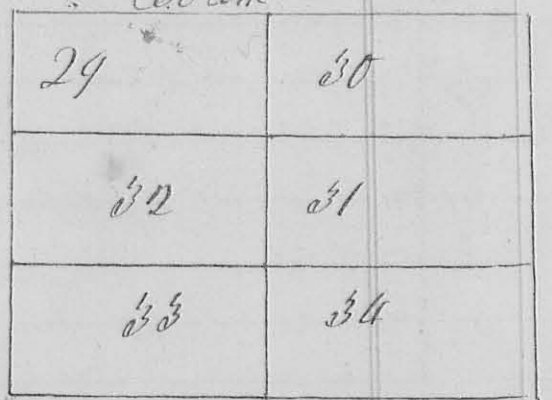 29 30
32 31
33 34